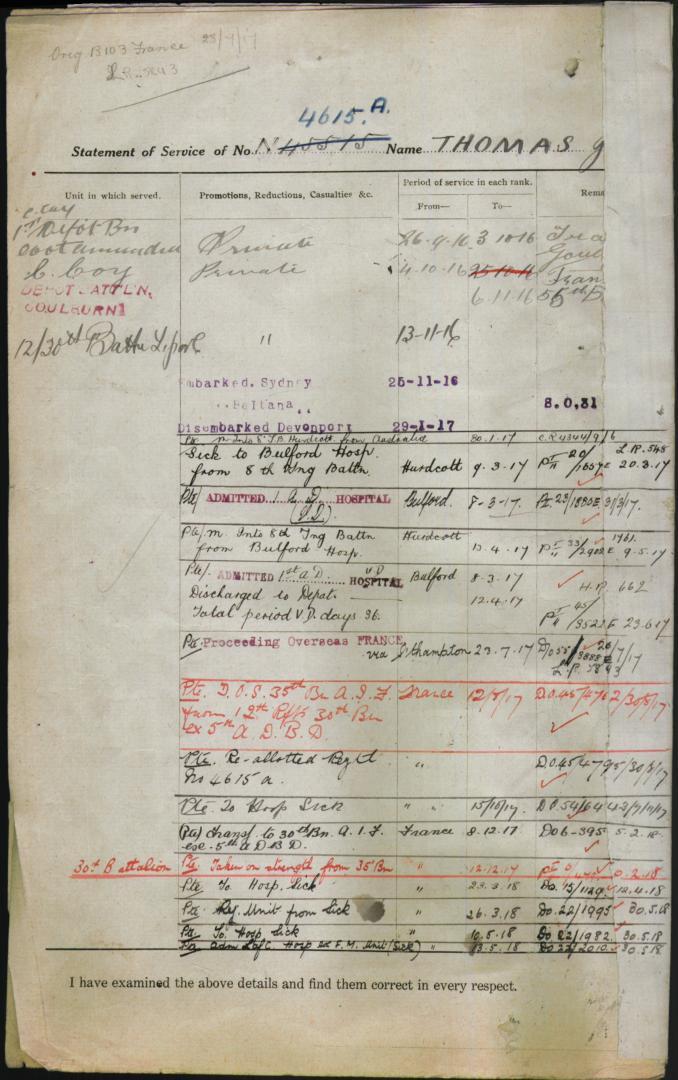 Orig B103 France 23/7/17
4615.A.
Statement of Service of No. N 45515 Name THOMAS
Unit in which served. Promotions, Reductions, Casualties &c. Period of service in each rank.
From— To— Rema
C. Coy
1st Depot Bn
Cootamundra Private 26.9.16 3 10 16
C. Coy Private 4.10.16 25 10 16 Tran
DEPOT BATTL'N, 6.11.16 55th B
GOULBURN
12/30th " 13-11-16
Embarked, Sydney 25-11-16
Beltana 8.0.31
Disembarked Devonport 29-1-17
Pte m Into 8th T.B. Hurdcott from Australia 30.1.17 6
Sick to Bulford Hosp. L.P. 548
from 8th Tng Battn. Hurdcott 9.3.17 Pt II 20/1657E 20.3.17
Pte/ ADMITTED 1 A D HOSPITAL Bulford. 8-3-17. 23/1880E 31/3/17.
(V.D).
Pte/ m. Into 8th Tng Battn Hurdcott 33/ 1761.
from Bulford Hosp. 13.4.17 2902E 9.5.17
Pte/- ADMITTED 1st A D. V.D HOSPITAL Bulford 8.3.17 H.P. 662
Discharged to Depot 12.4.17
Total period V.D. days 36. Pt II 45/3521E 23.6.17
Pte. Proceeding Overseas FRANCE,
via S'thampton 23.7.17 D/055/3888E 26/7/17
Pte. T.O.S. 35th Bn A.I.F France 12/8/17 D.O.45/4762/30/8/17
from 12th Rfts 30th Bn
ex 5th A.D.B.D.
Pte. Re-allotted Regtl " D.O.45/4795/30/8/17
No 4615 a.
Pte. To Hosp Sick " " 15/10/17.
(Pte) Transf. to 30th Bn. A.I.F. France 8.12.17 D06-395 5.2.18
ex. 5th A D B D.
30th Battalion Pte Taken on strength from 35 Bn " 12.12.17
Pte To Hosp. Sick " 23.3.18 Do. 15/1129 12.4.18
Pte Rej. Unit from Sick " 26.3.18 Do.22/1995 30.5.18
Pte To Hosp Sick " 10.5.18 Do 22/1982 30.5.18
Pte Adm Hosp ex F.M. Unit (Sick) " 13.5.18 Do 22/2010 30.5.18
I have examined the above details and find them correct in every respect.